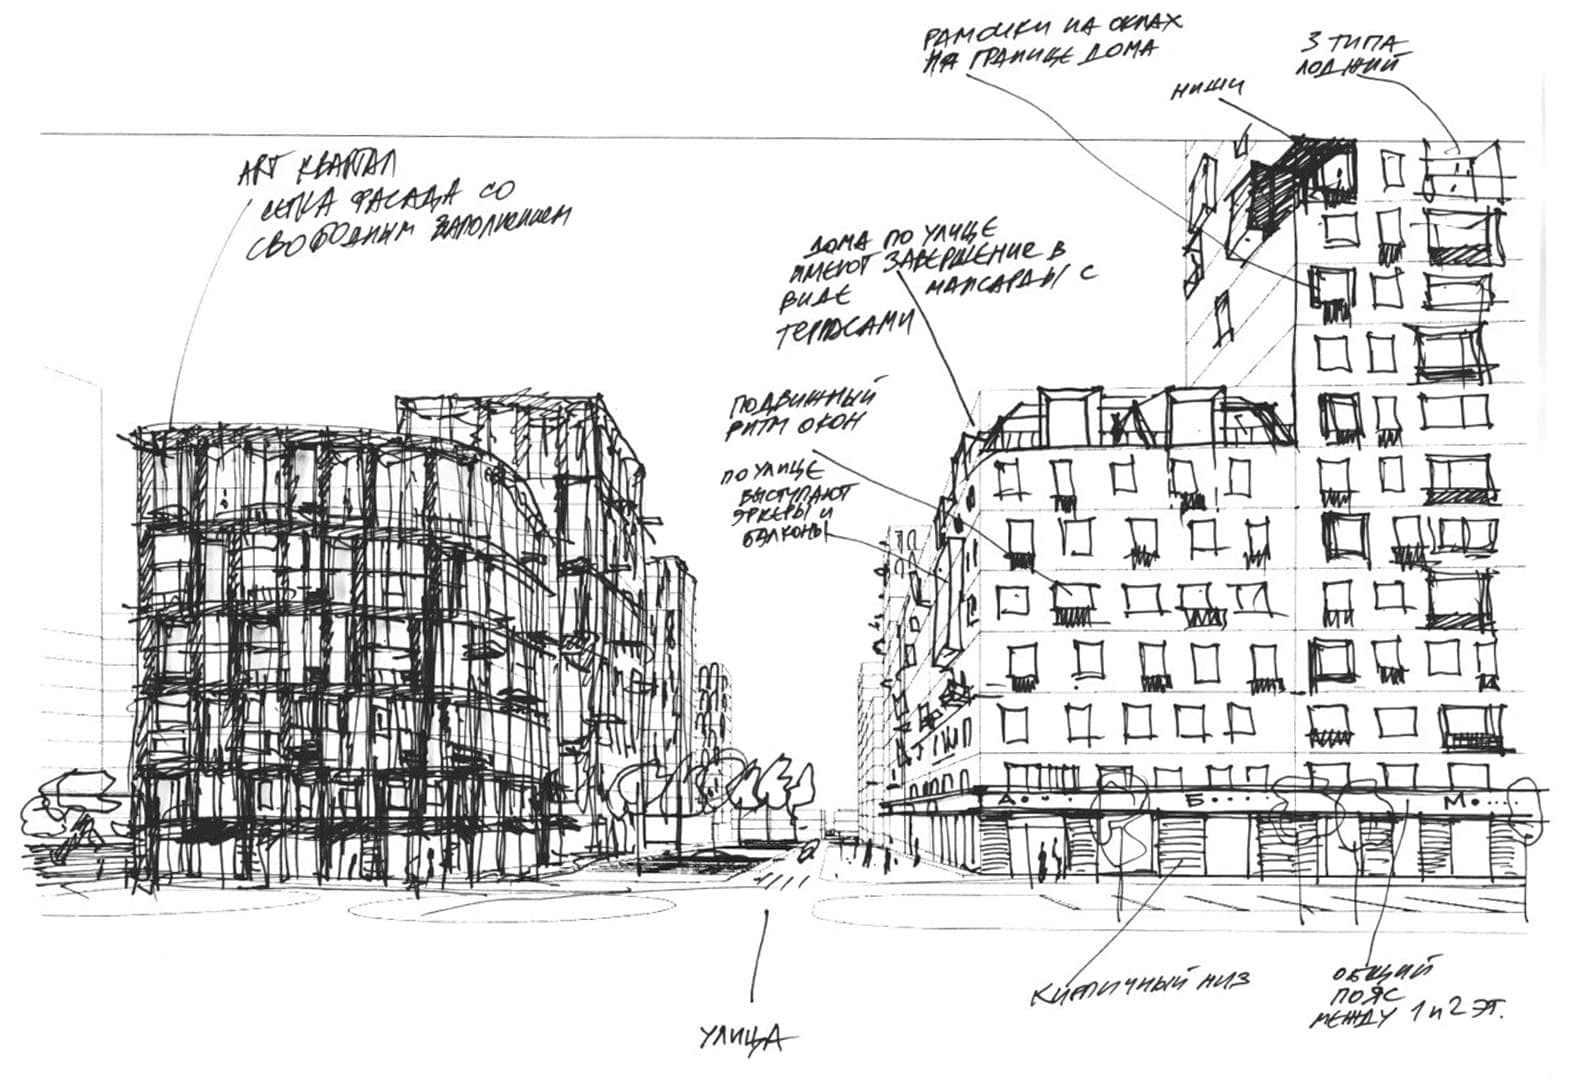 РАМОЧКИ НА ОКНАХ
НА ГРАНИЦЕ ДОМА
3 ТИПА
ЛОДЖИЙ
НИШИ
ART КВАРТАЛ
СЕТКА ФАСАДА СО
СВОБОДНЫМ ЗАПОЛНЕНИЕМ
ДОМА ПО УЛИЦЕ
ИМЕЮТ ЗАВЕРШЕНИЕ В
ВИДЕ МАНСАРДЫ С
ТЕРРАСАМИ
ПОДВИЖНЫЙ
РИТМ ОКОН
ПО УЛИЦЕ
ВЫСТУПАЮТ
ЭРКЕРЫ И
БАЛКОНЫ
А.... Б.... М....
КИРПИЧНЫЙ НИЗ
ОБЩИЙ
ПОЯС
МЕЖДУ 1 и 2 ЭТ.
УЛИЦА